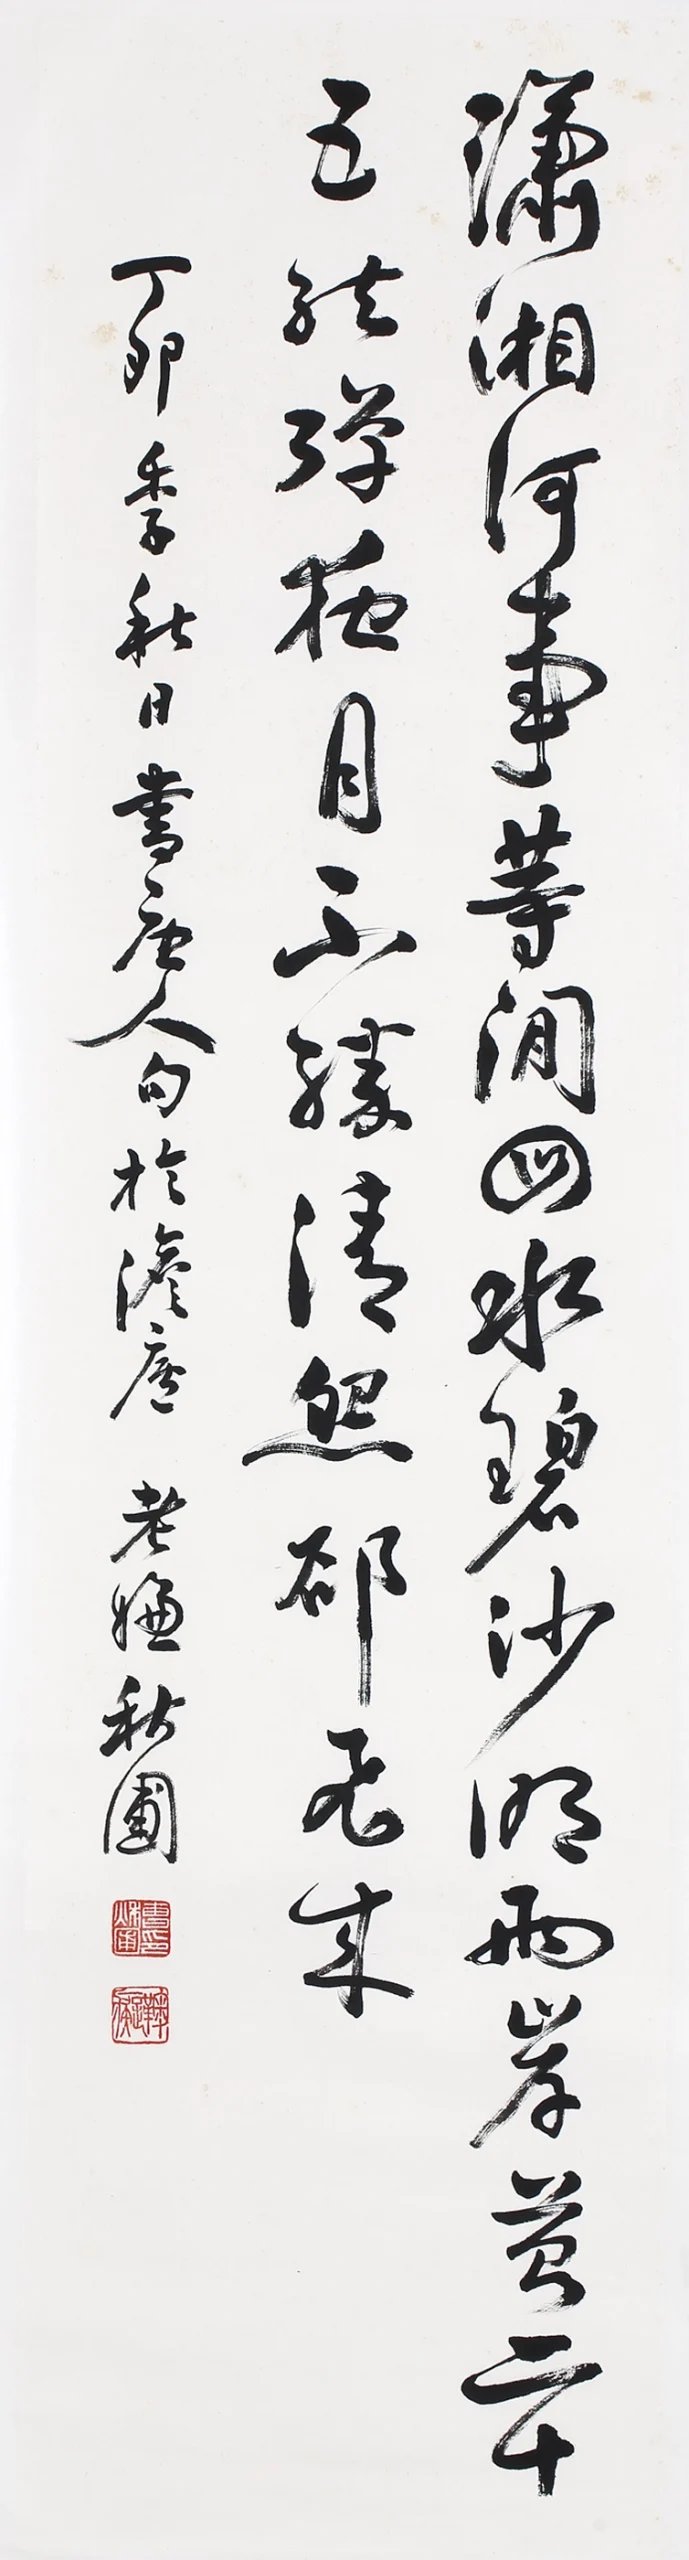 瀟湘何事等閒回水碧沙明兩岸苔二十
五絃彈夜月不勝清怨卻飛來
丁卯季秋日書唐人句於澹廬 老嫌秋圃
曹印秋圃